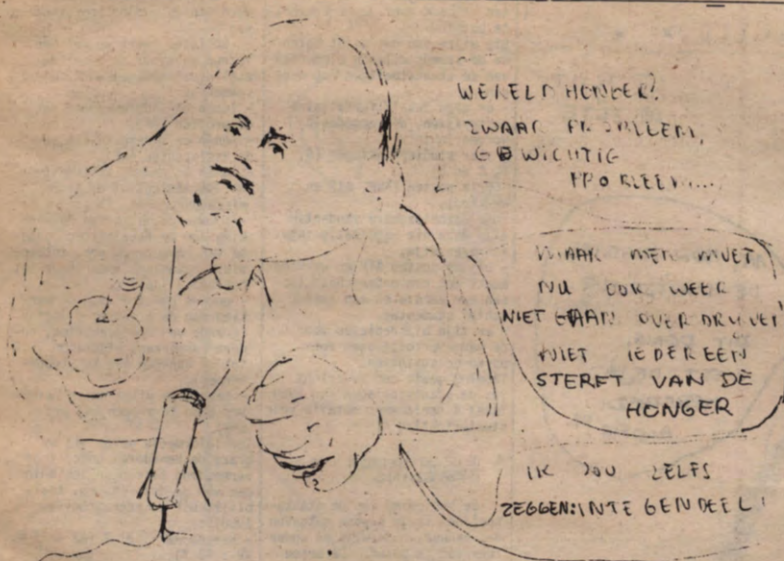 WERELD HONGER?
ZWAAR PROBLEEM,
GEWICHTIG
PROBLEEM....
MAAR MEN MOET
NU OOK WEER
NIET GAAN OVERDRIJVEN
NIET IEDEREEN
STERFT VAN DE
HONGER
IK ZOU ZELFS
ZEGGEN: INTEGENDEEL!